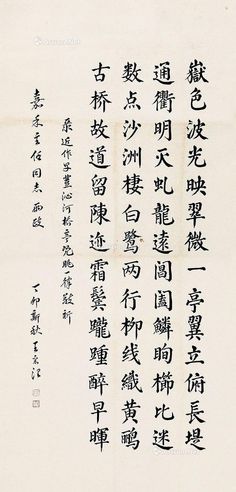 嶽色波光映翠微一亭翼立俯長堤
通衢明灭虬龍遠閭闔鱗晌櫛比迷
数点沙洲棲白鹭两行柳线織黄鹂
古桥故道留陳迹霜鬓躘踵醉早暉
录近作子荁沁河拾亭晚眺一律敬祈
嘉禾主任同志两政
丁卯新秋